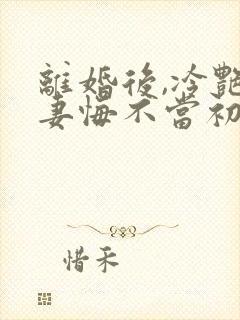 離婚後,冷艷
妻悔不當初
惜禾